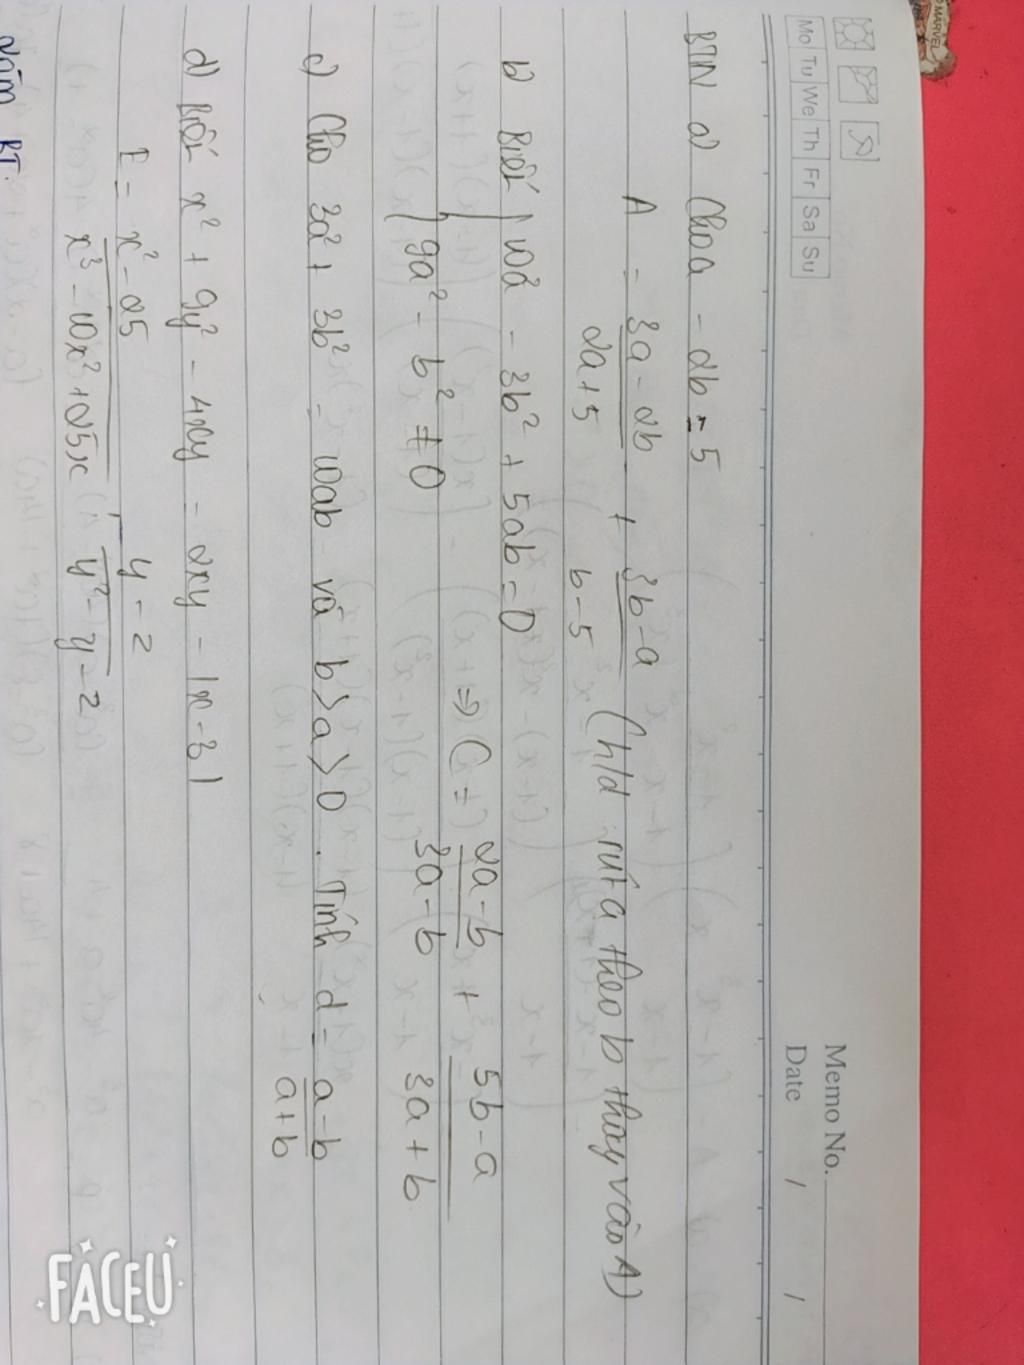 MARVEL
Memo No.
Mo Tu We Th Fr Sa Su
Date / /
BTVN a) Cho a - 2b = 5
A = \frac{3a - 2b}{2a + 5} + \frac{3b - a}{b - 5} (h/d rút a theo b thay vào A)
b) Biết 10a² - 3b² + 5ab = 0
9a² - b² ≠ 0 ⇒ C = \frac{2a - b}{3a - b} + \frac{5b - a}{3a + b}
c) Cho 3a² + 3b² = 10ab và b > a > 0. Tính d = \frac{a - b}{a + b}
d) Biết x² + 9y² - 4xy = 2xy - |x - 3|
E = \frac{x² - 25}{x³ - 10x² + 25x} : \frac{y - 2}{y² - y - 2}
BT:
FACEU